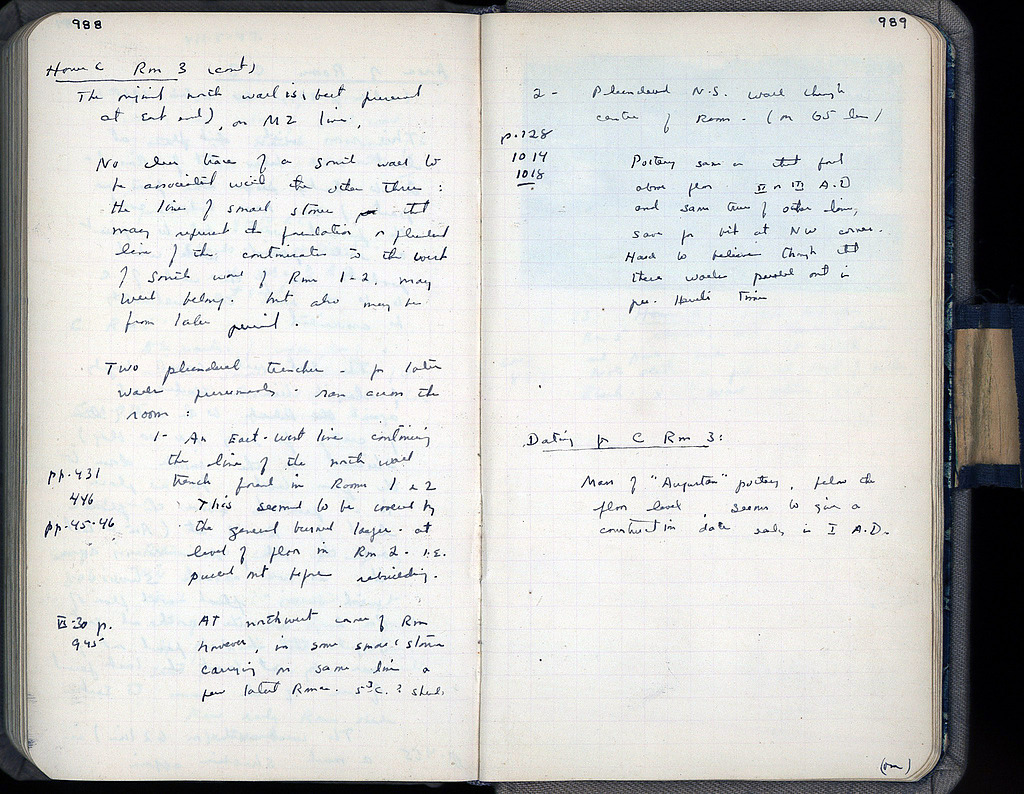 988
House C Rm 3 (cont)
The original north wall is best preserved
at East end, on M2 line.
No clear trace of a south wall to
be associated with the other three:
the line of small stones that
may represent the foundation or plundered
line of the continuation to the west
of south wall of Rm 1-2, may
well belong. but also may be
from later period.
Two plundered trenches - for later
walls presumably - ran across the
room:
1- An East-west line continuing
the line of the north wall
trench found in Rooms 1 & 2
pp. 431
446
This seemed to be covered by
pp. 45-46
the general burned layer at
level of floor in Rm 2. i.e.
pulled out before rebuilding.
VI-30 p.
945
At northwest corner of Rm
however, in some small stones
carrying on same line a
few latest Roman. 53 C. ? sherds
989
2- Plundered N.S. wall through
centre of Room - (on 65 line)
p. 728
1014
1018
Pottery same as that found
above floor II or III A.D
and same true of other line,
save for bit at NW corner.
Hard to believe though that
these walls pulled out in
pre. Herulian Times
Dating for C Rm 3:
Mass of "Augustan" pottery, below the
floor level, seems to give a
construction date early in I A.D.
(over)